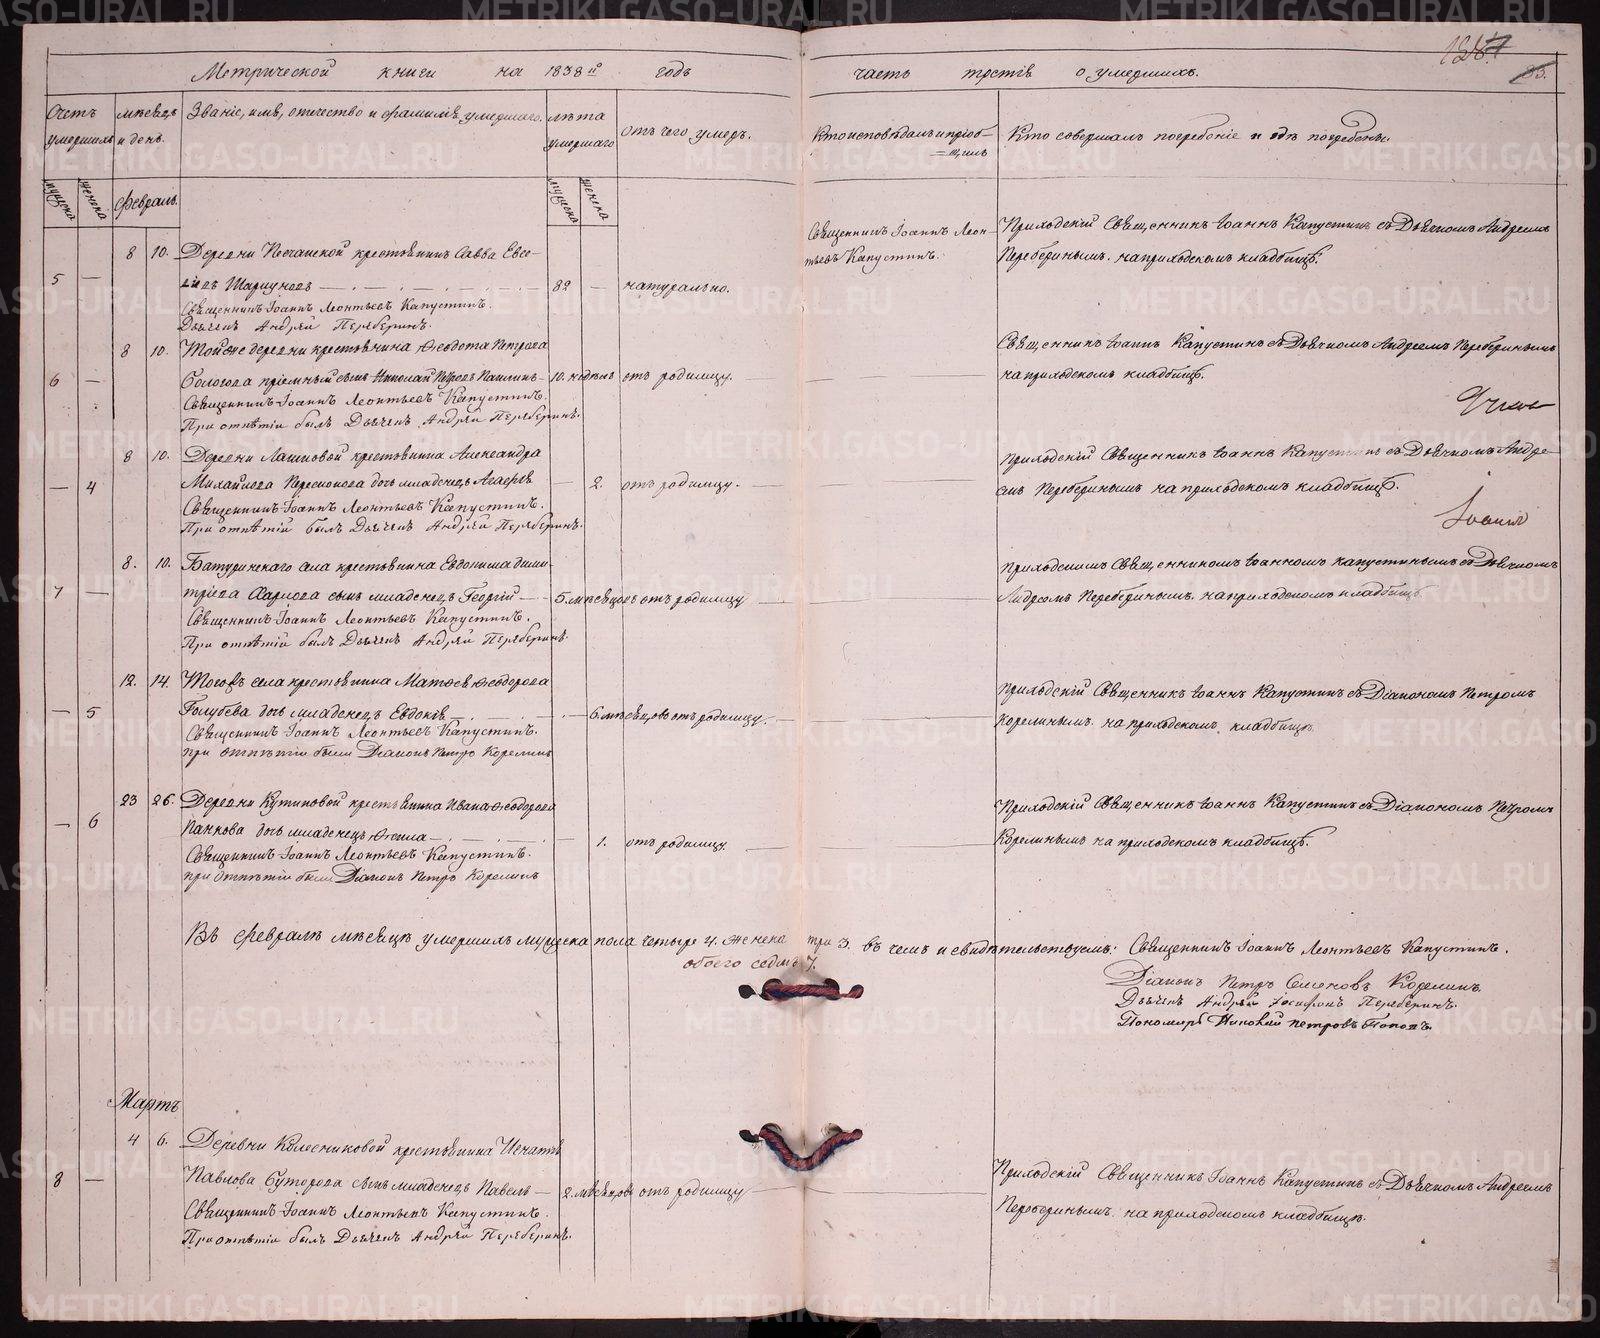 Метрической книги на 1838й годъ часть третія о умершихъ.
Счетъ умершихъ
мѣсяцъ и день.
Званіе, имя, отчество и фамилія умершаго.
лѣта умершаго
отъ чего умеръ.
Кто исповѣдалъ и пріоб=щилъ
Кто совершалъ погребеніе и гдѣ погребены.
мужеска
женска
февраль.
мужеска
женска
5 — 8 10. Деревни Песчанской крестьянинъ Савва Евсе-
евъ — 82 — натурально.
Священникъ Іоаннъ Леонтьевъ Капустинъ.
Дьячекъ Андрей Переберинъ.
Священникъ Іоаннъ Леон-
тьевъ Капустинъ.
Приходскій Священникъ Іоаннъ Капустинъ съ Дьячкомъ Андреемъ
Переберинымъ на приходскомъ кладбищѣ.
6 — 8 10. Той же деревни крестьянина Ѳеодота Петрова
пріемный сынъ Николай Петровъ — 10. недѣль отъ родимцу. —
Священникъ Іоаннъ Леонтьевъ Капустинъ.
При отпѣтіи былъ Дьячекъ Андрей Переберинъ.
Священникъ Іоаннъ Капустинъ съ Дьячкомъ Андреемъ Переберинымъ
на приходскомъ кладбищѣ.
— 4 8 10. Деревни крестьянина Александра
Михайлова дочь младенецъ Агафія — 2. отъ родимцу. —
Священникъ Іоаннъ Леонтьевъ Капустинъ.
При отпѣтіи былъ Дьячекъ Андрей Переберинъ.
Приходскій Священникъ Іоаннъ Капустинъ съ Дьячкомъ Андре-
емъ Переберинымъ на приходскомъ кладбищѣ.
Іоаннъ
7 — 8. 10. Батуринскаго села крестьянина Евдокима Дими-
тріева сынъ младенецъ Георгій — 5. мѣсяцовъ отъ родимцу —
Священникъ Іоаннъ Леонтьевъ Капустинъ.
При отпѣтіи былъ Дьячекъ Андрей Переберинъ.
Приходскимъ Священникомъ Іоанномъ Капустинымъ съ Дьячкомъ
Андреемъ Переберинымъ. на приходскомъ кладбищѣ.
— 5 12. 14. Тогожъ села крестьянина Матѳея Ѳеодорова
Голубева дочь младенецъ Евдокія — 6. мѣсяцовъ отъ родимцу. —
Священникъ Іоаннъ Леонтьевъ Капустинъ.
при отпѣтіи былъ Діаконъ Петръ Корелинъ
Приходскій Священникъ Іоаннъ Капустинъ съ Діакономъ Петромъ
Корелинымъ на приходскомъ кладбищѣ.
— 6 23 26. Деревни Кутиковой крестьянина Ивана Ѳеодорова
Панкова дочь младенецъ — 1. отъ родимцу. —
Священникъ Іоаннъ Леонтьевъ Капустинъ.
при отпѣтіи былъ Діаконъ Петръ Корелинъ
Приходскій Священникъ Іоаннъ Капустинъ съ Діакономъ Петромъ
Корелинымъ на приходскомъ кладбищѣ.
Въ февралѣ мѣсяцѣ умершихъ мужеска пола четыре 4. женска три 3. въ чемъ и свидѣтельствуемъ: Священникъ Іоаннъ Леонтьевъ Капустинъ.
обоего седмь 7.
Діаконъ Петръ Семеновъ Корелинъ.
Дьячекъ Андрей Іосифовъ Переберинъ.
Пономарь Николай Петровъ Поповъ.
Мартъ
8 — 4 6. Деревни Колесниковой крестьянина Игнатія
Павлова Суторова сынъ младенецъ Павелъ — 2. мѣсяцовъ отъ родимцу —
Священникъ Іоаннъ Леонтьевъ Капустинъ.
При отпѣтіи былъ Дьячекъ Андрей Переберинъ.
Приходскій Священникъ Іоаннъ Капустинъ съ Дьячкомъ Андреемъ
Переберинымъ на приходскомъ кладбищѣ.
METRIKI.GASO-URAL.RU